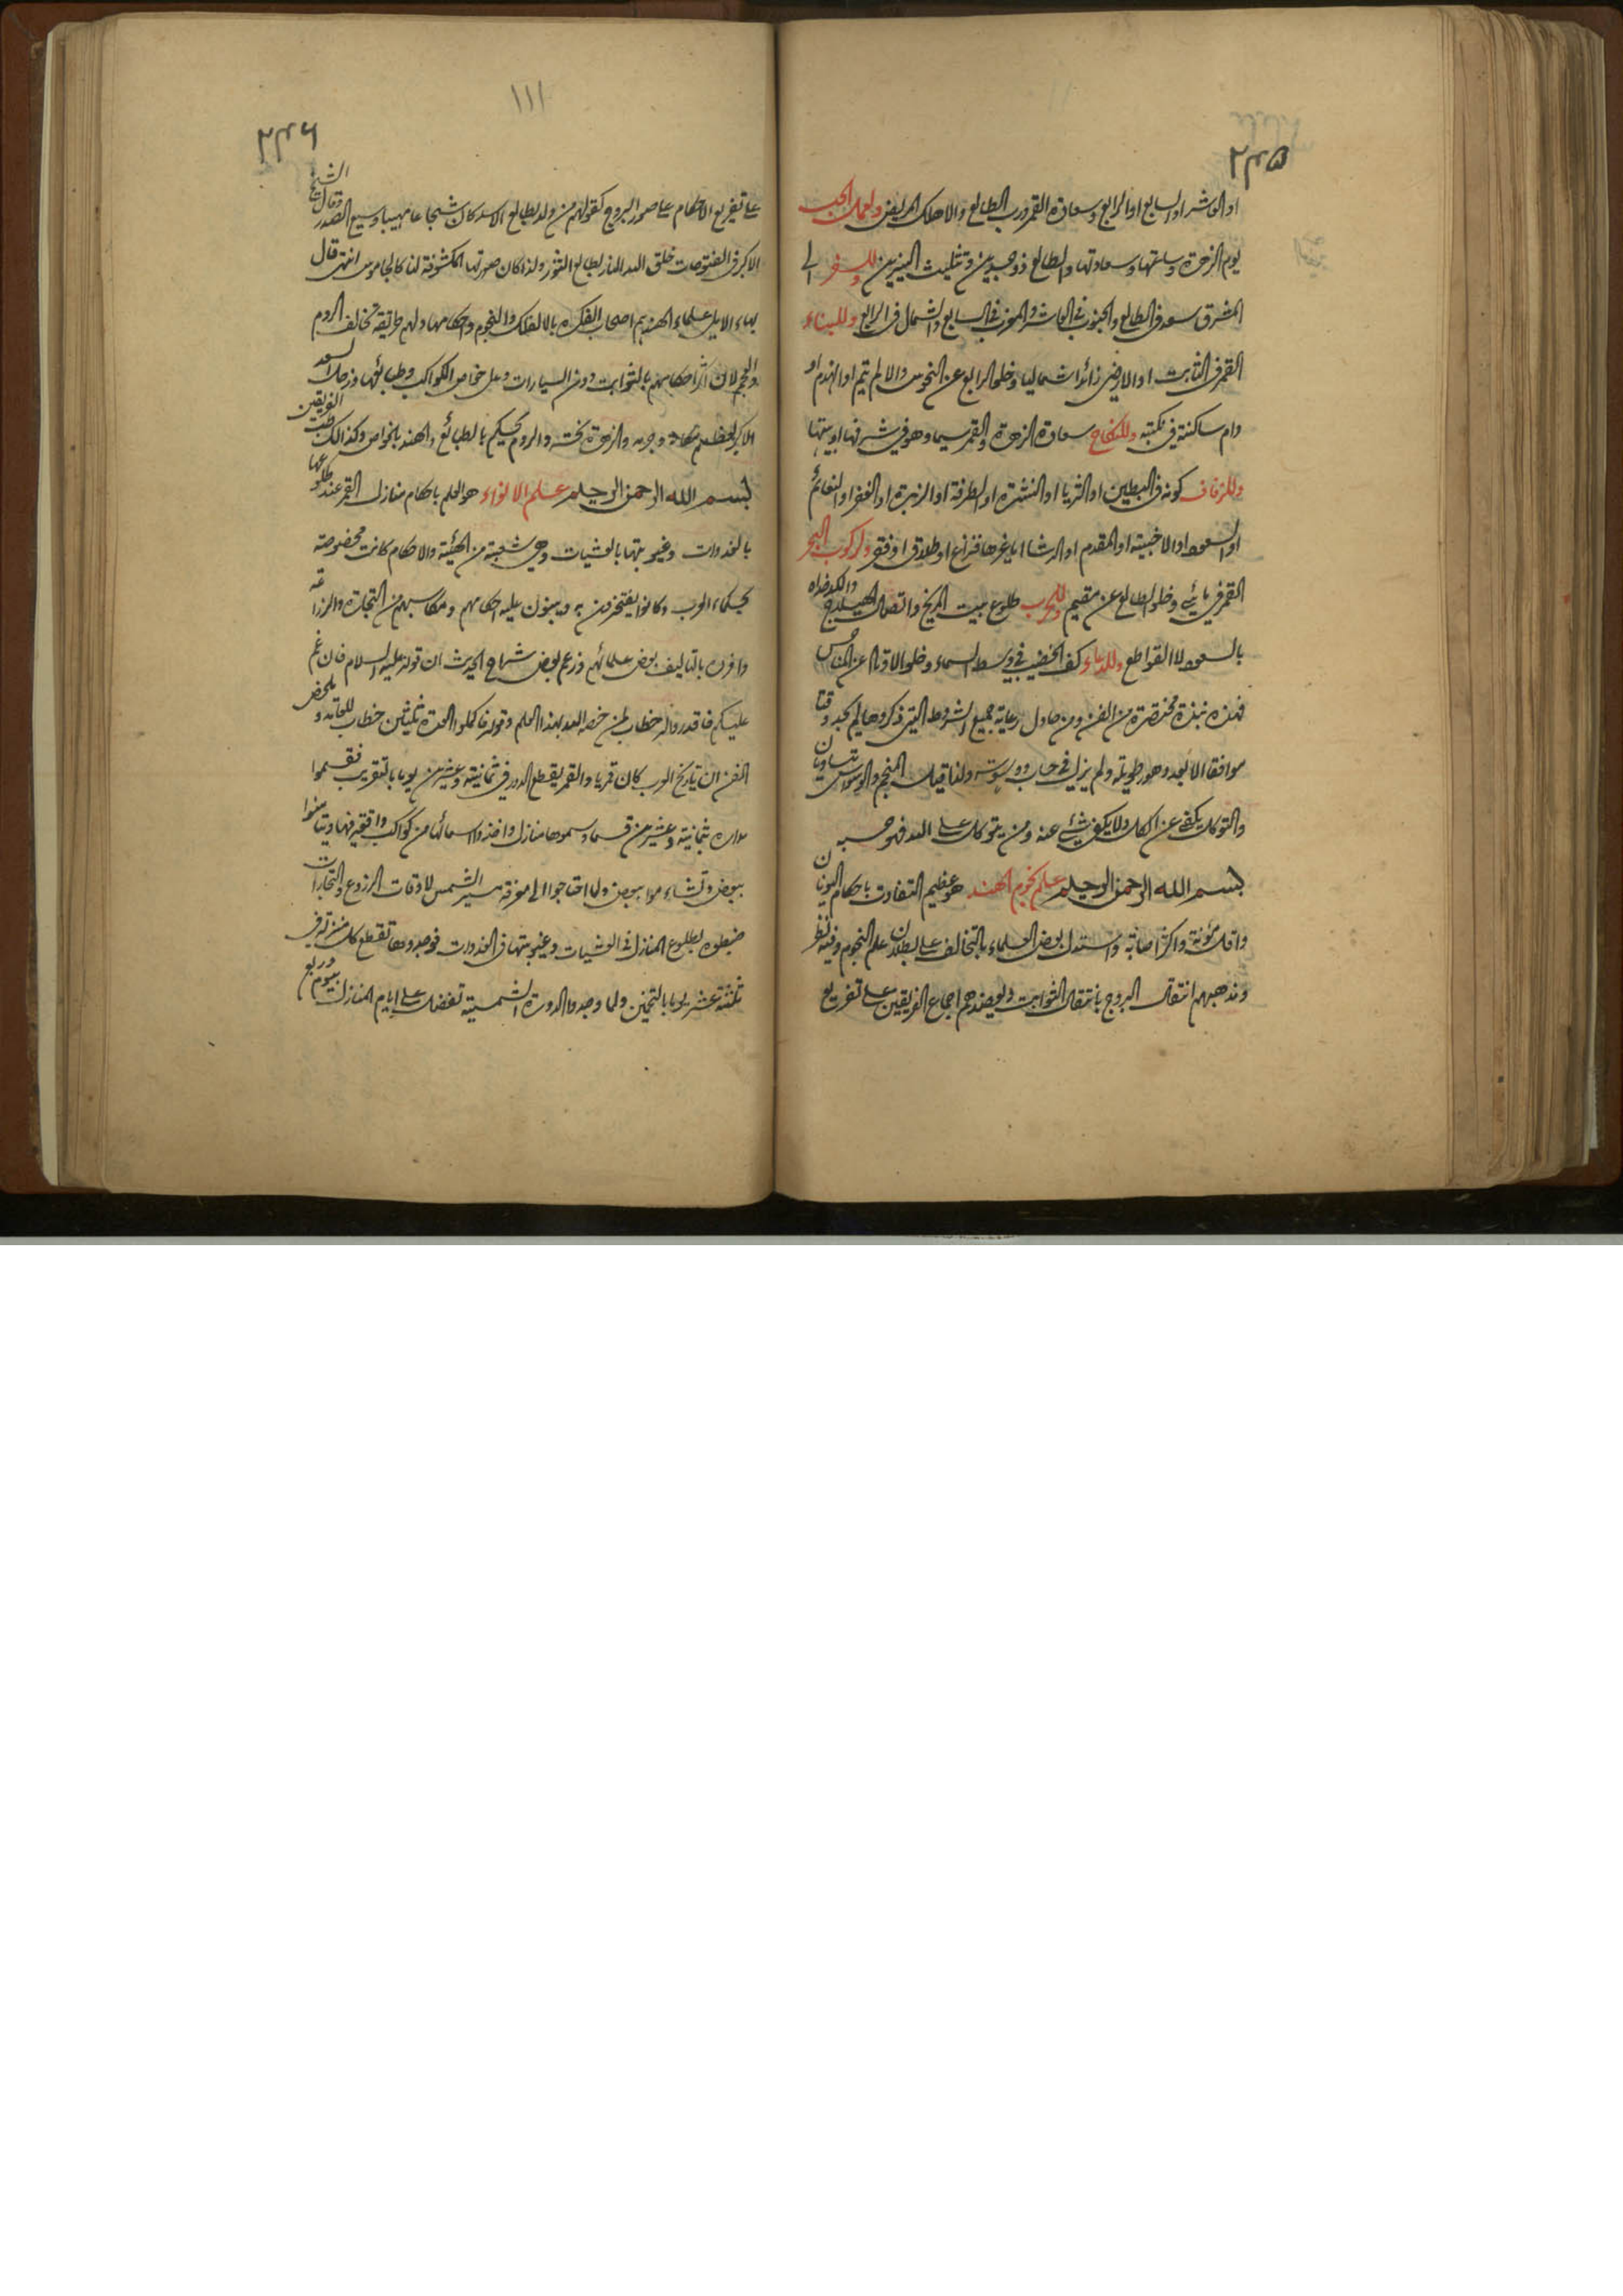 ٢٤٥
او العاشر او السابع او الرابع وسعادة القمر ورب الطالع والا هلك المريض ولعمل الحب
يوم الزهرة وساعتها وسعادتها والطالع ذو جسدين وتثليث النيرين وللسفر الى
المشرق سعد في الطالع والجنوب في العاشر والمغرب في السابع والشمال في الرابع وللبناء
القمر في الثابت او الارضي زائدا شماليا وخلو الرابع عن النحوس والا لم يتم او انهدم او
دام ساكنه في نكبته وللنكاح سعادة الزهرة والقمر سيما وهو في شرفها او بيتها
وللزفاف كونه في البطين او الثريا او النثرة او الطرفة او الزبرة او الغفر او النعائم
او السعود او الاخبية او المقدم او الرشا اما غيرها فنزاع او طلاق او فقر ولركوب البحر
القمر في مائي وخلو الطالع عن مقيم وللحرب طلوع بيت المريخ واتصال الهيلاج والكدخداه
بالسعود لا القواطع وللدعاء كف الخضيب في وسط السماء وخلو الاوتاد عن المناحس
فهذه نبذة مختصرة من الفن ومن حاول رعاية جميع الشروط التي ذكروها لم يجد وقتا
موافقا الا بعد دهور طويلة ولم يزل في حساب ووسوسة ولذا قيل المنجم والوسواس يتساويان
والتوكل يكفي عن الكل ولا يكفي شيء عنه ومن يتوكل على الله فهو حسبه
بسم الله الرحمن الرحيم علم نجوم الهند هو عظيم التفاوت باحكام اليونان
واقل مؤنة واكثر اصابة واستدل بعض العلماء بالتخالف على بطلان علم النجوم وفيه نظر
ومذهبهم انتقال البروج بانتقال الثوابت ويعضدهم اجماع الفريقين على تفريع
١١١
٢٤٦
على تفريع الاحكام على صور البروج كقولهم من ولد بطالع الاسد كان شجاعا مهيبا وسيع الصدر وقال الشيخ
الاكبر في الفتوحات خلق الله النار بطالع الثور ولذا كان صورتها المكشوفة لنا كالجاموس انتهى قال
بهاء الامل علماء الهند هم اصحاب الفكرة بالافلاك والنجوم واحكامها ولهم طريقة تخالف الروم
والعجم لان اكثر احكامهم بالثوابت دون السيارات وعلى خواص الكواكب وطبائعها وزحل السعد
الاكبر لعظم مكانه وجرمه والزهرة نحسة والروم تحكم بالطبائع والهند بالخواص وكذلك طب الفريقين
بسم الله الرحمن الرحيم علم الانواء هو العلم باحكام منازل القمر عند طلوعها
بالغدوات وغيوبتها بالعشيات وهي شعبة من الهيئة والاحكام كانت مخصوصة
بحكماء العرب وكانوا يفتخرون به ويبنون عليه احكامهم ومكاسبهم من التجارة والزراعة
وافرده بالتاليف بعض علمائهم وزعم بعض شراح الحديث ان قوله عليه السلام فان غم
عليكم فاقدروا له خطاب لمن خصه الله بهذا العلم وقوله فاكملوا العدة ثلثين خطاب للعامة وملخص
الفن ان تاريخ العرب كان قمريا والقمر يقطع الدور في ثمانية وعشرين يوما بالتقريب فقسموا
مداره ثمانية وعشرين قسما وسموها منازل واخذوا اسمائها من كواكب واقعة فيها وتيامنوا
ببعض وتشاءموا ببعض ولما احتاجوا الى معرفة مسير الشمس لاوقات الزروع والتجارات
ضبطوه بطلوع المنازل في العشيات وغيوبتها في الغدوات فوجدوها تقطع كل منزلة في
ثلثة عشر يوما بالتخمين ولما وجدوا الدورة الشمسية تفضل على ايام المنازل بيوم وربع